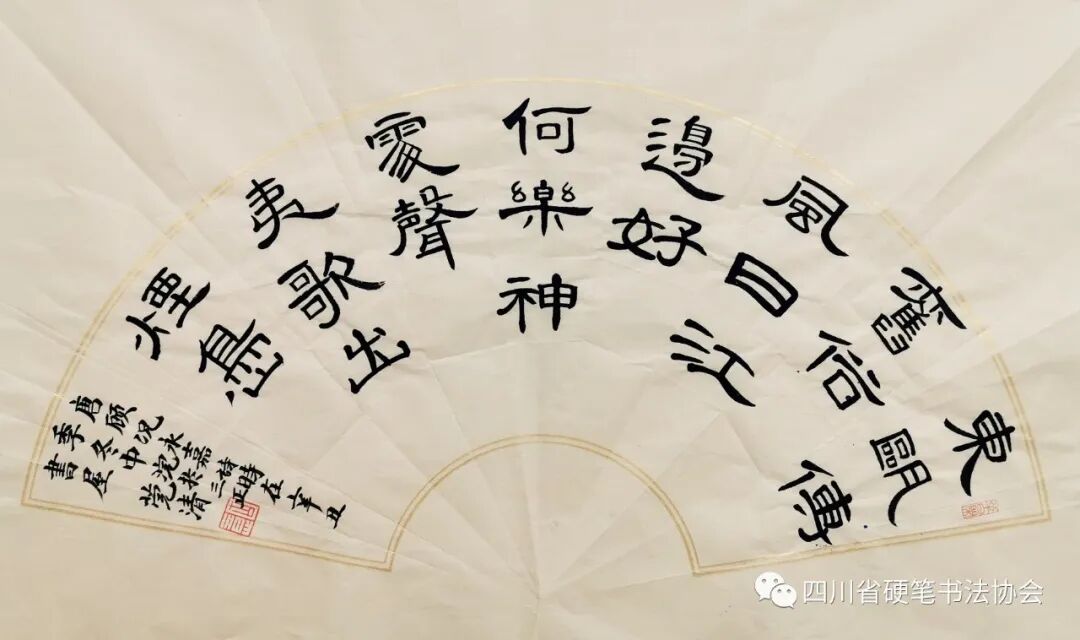 東甌傳
舊俗
風日江
邊好
何樂神
處聲
夷歌出
煙島
唐顾况永嘉詩時在辛丑
季冬中浣
書屋
四川省硬笔书法协会